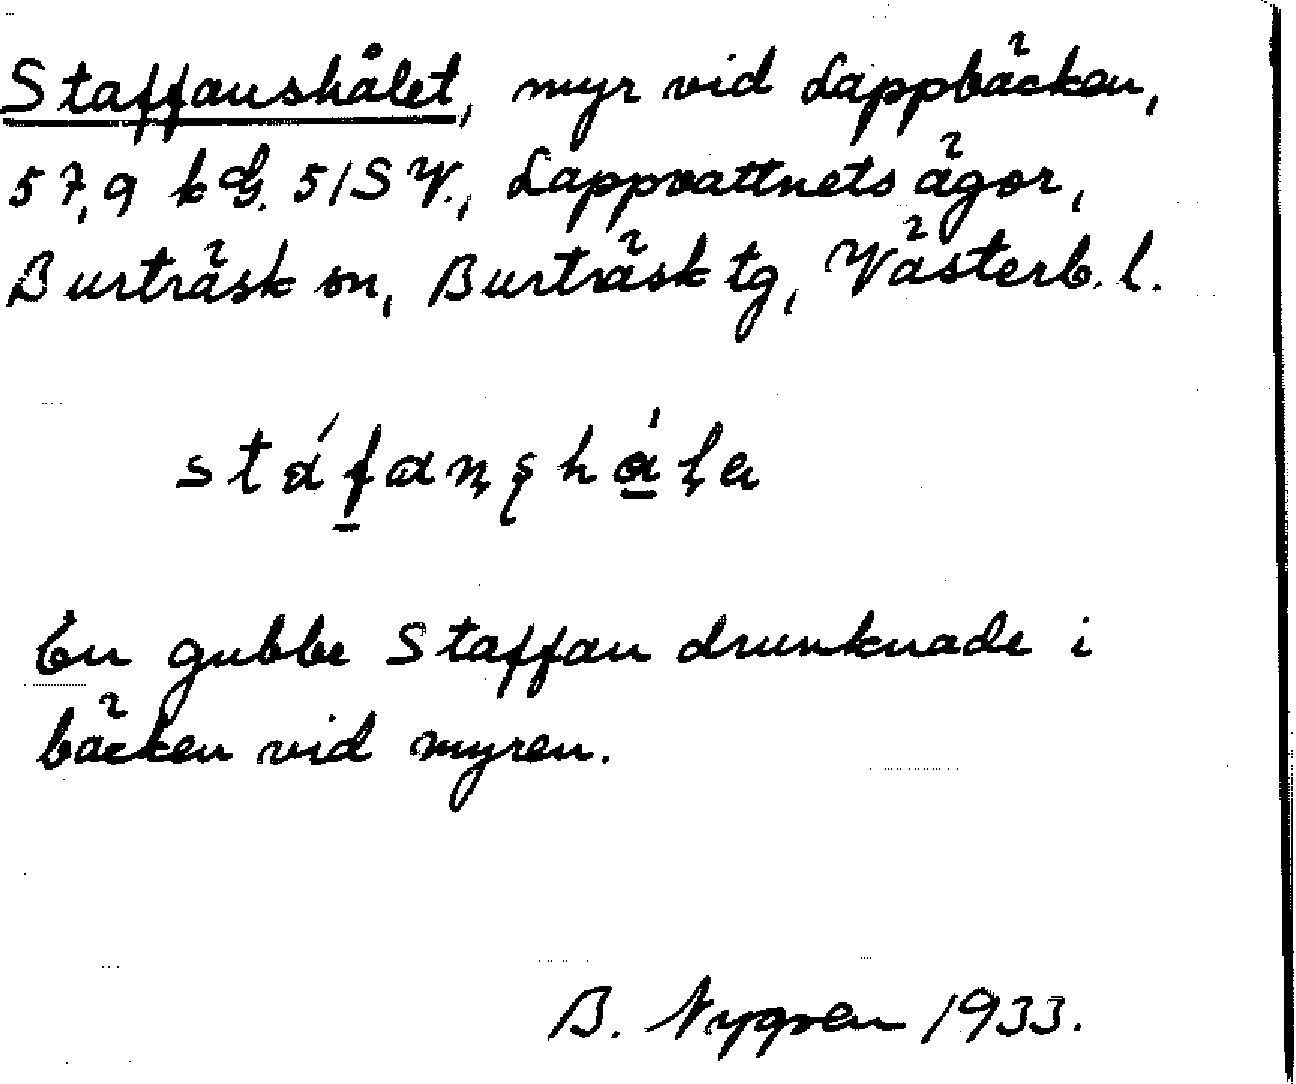 Staffanshålet, myr vid Lappbäcken,
57,9 bG. 51SV., Lappvattnets ägor,
Burträsk sn, Burträsk tg, Västerb. l.
En gubbe Staffan drunknade i
bäcken vid myren.
B. Nygren 1933.